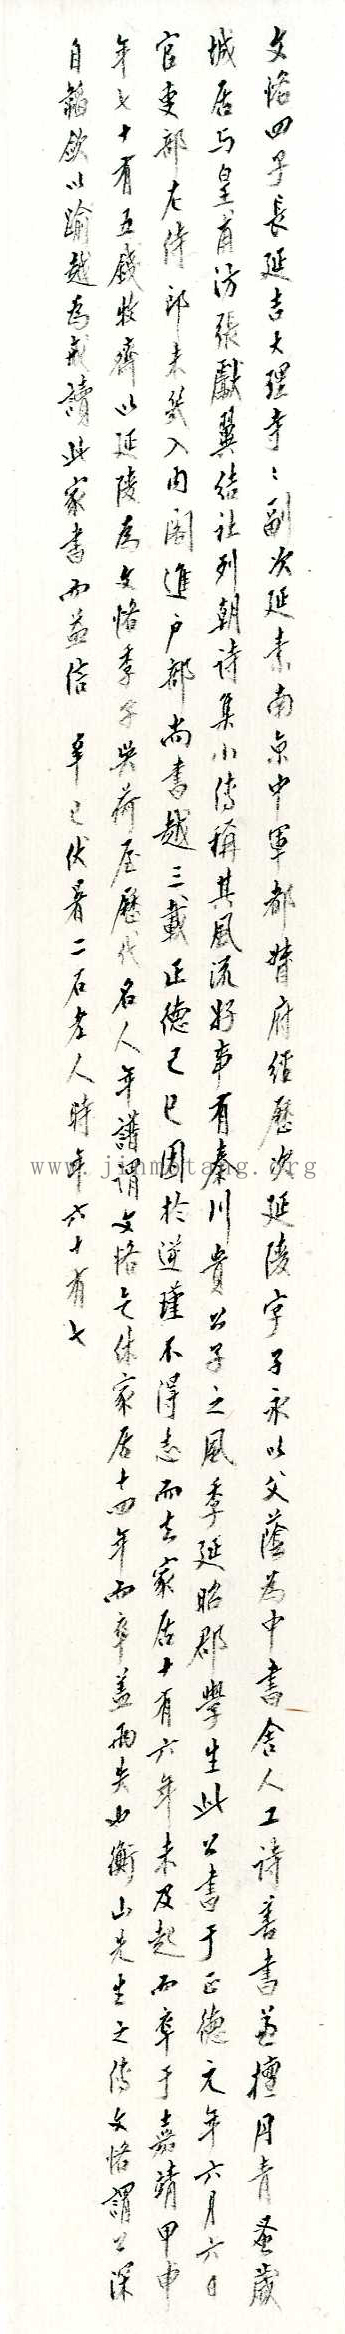 文恪四子長延吉大理寺〻副次延素南京中軍都督府經歷次延陵字子永以父蔭為中書舍人工詩善書兼擅丹青蚤歲
城居与皇甫汸張獻翼結社列朝詩集小傳稱其風流好事有秦川貴公子之風季延昭郡學生此公書于正德元年六月六日
官吏部左侍郎未幾入內閣進戶部尚書越三載正德己巳困於逆瑾不得志而去家居十有六年未及起而卒于嘉靖甲申
年七十有五錢牧齋以延陵為文恪季子吳荷屋歷代名人年譜謂文恪乞休家居十四年而卒蓋兩失也衡山先生之傳文恪謂公深
自韜斂以踰越為戒讀此家書而益信 辛巳伏暑二石老人時年六十有七
www.jinmotang.org